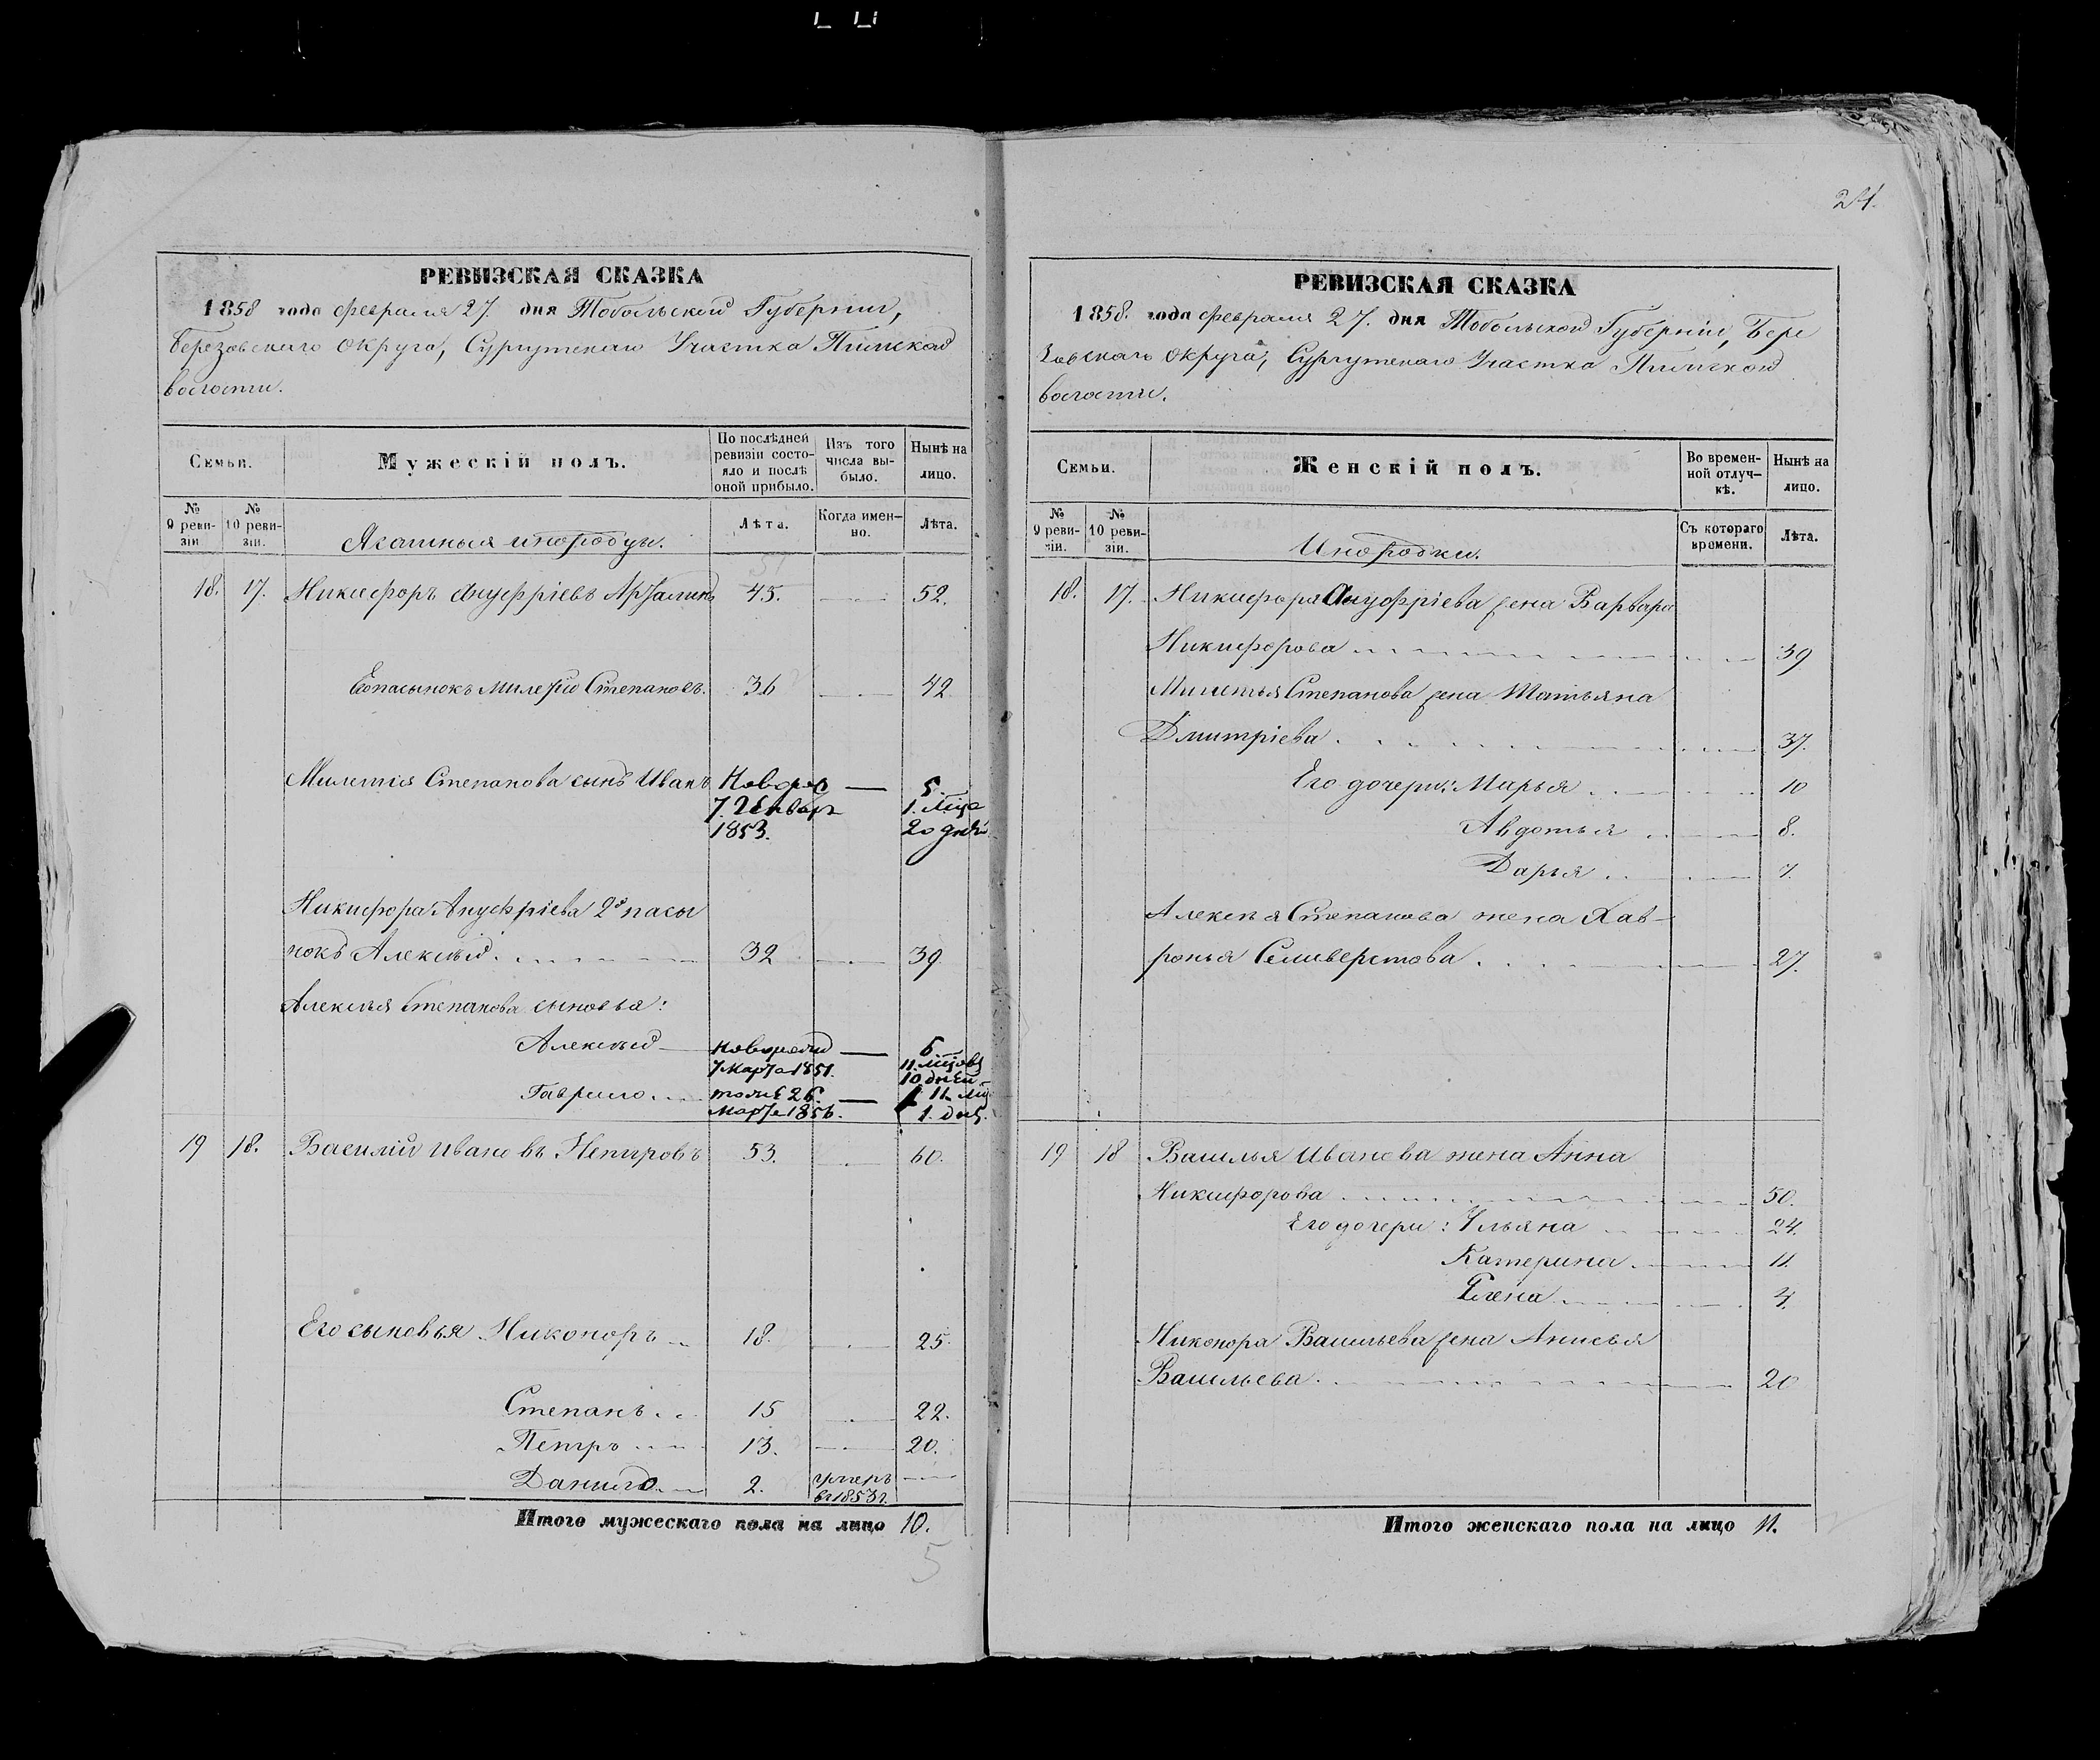 24.
РЕВИЗСКАЯ СКАЗКА
1858 года февраля 27. дня Тобольской Губернии,
Березовскаго Округа, Сургутскаго Участка Пимской
волости.
Семьи.
Мужескій полъ.
По послѣдней ревизіи состояло и послѣ оной прибыло.
Изъ того числа выбыло.
Нынѣ на лицо.
№ 9 ревизіи.
№ 10 ревизіи.
Лѣта.
Когда именно.
Лѣта.
Ясашныя инородцы.
18. 17. Никифоръ Ануфріевъ 45. 52.
Его пасынокъ Милетій Степановъ. 36 42
Милетія Степанова сынъ Иванъ Новорож 5.
7. Генваря 1. мѣся
1853. 20 дней
Никифора Ануфріева 2й пасы
нокъ Алексѣй. 32 39
Алексѣя Степанова сыновья:
Алексѣй новорожд 6
7 Марта 1851. 11. мѣсцовъ
10 дней
Гаврило тоже 26. 1 11. мѣ
Марта 1856. 1. день.
19 18. Василій Ивановъ Непировъ 53. 60.
Его сыновья Никоноръ 18. 25.
Степанъ 15 22.
Петръ 13. 20.
Данило 2. умеръ
въ 1853 г.
Итого мужескаго пола на лицо 10.
5
РЕВИЗСКАЯ СКАЗКА
1858. года февраля 27. дня Тобольской Губерніи, Бере
зовскаго Округа, Сургутскаго Участка Пимской
волости.
Семьи.
Женскій полъ.
Во временной отлучкѣ.
Нынѣ на лицо.
№ 9 ревизіи.
№ 10 ревизіи.
Съ котораго времени.
Лѣта.
Инородки.
18. 17. Никифора Ануфріева жена Варвара
Никифорова 39
Милетья Степанова жена Татьяна
Дмитріева 37.
Его дочери: Марья 10
Авдотья 8.
Дарья 7.
Алексѣя Степанова жена Хав-
ронья Селиверстова 27.
19 18 Василья Иванова жена Анна
Никифорова 50.
Его дочери: Ульяна 24.
Катерина 11.
Елена 4.
Никонора Васильева жена Анисья
Васильева. 20
Итого женскаго пола на лицо 11.